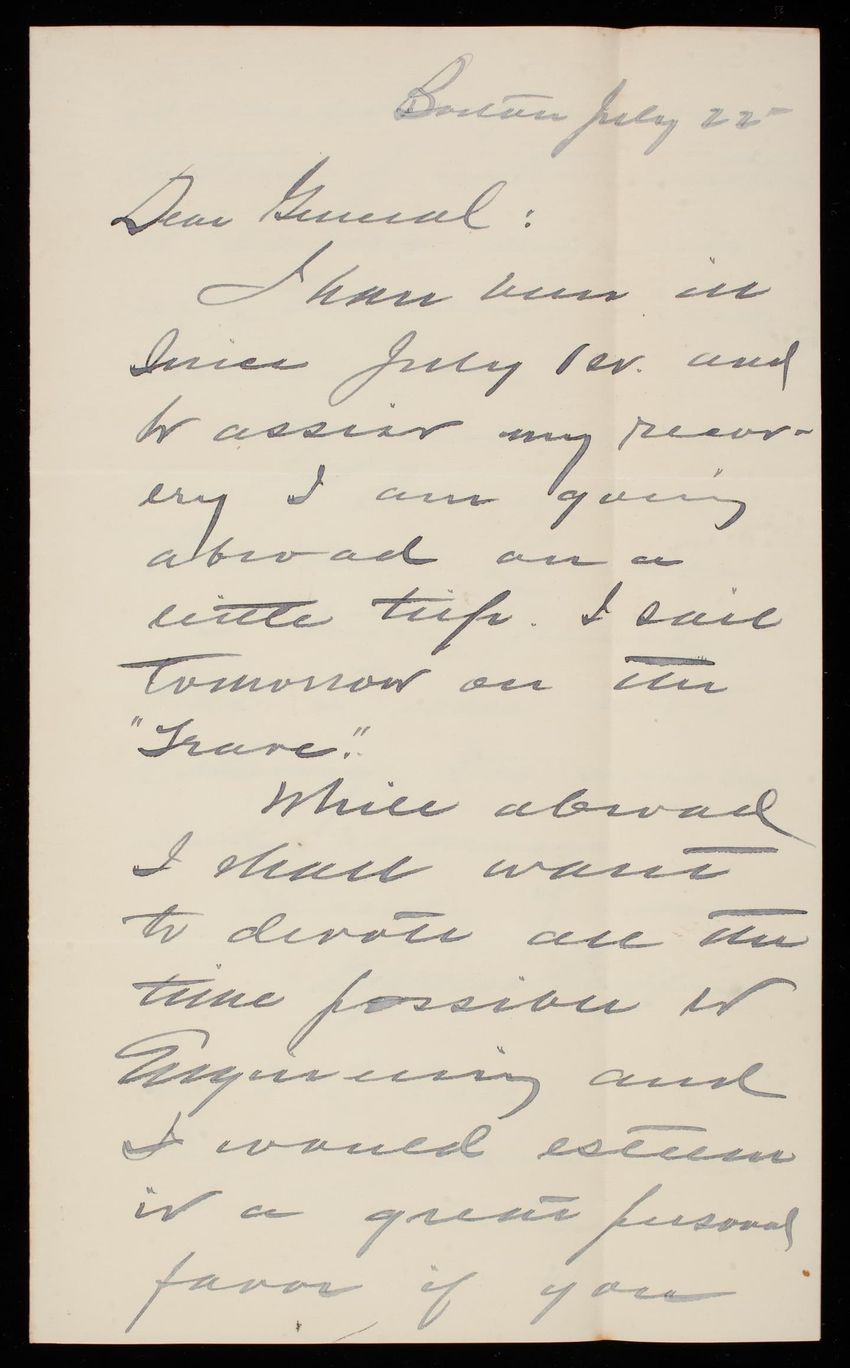 Boston July 22
Dear General:
I have been ill
since July 1st. and
to assist my recov-
ery I am going
abroad on a
little trip. I sail
tomorrow on the
"Trave".
While abroad
I shall want
to devote all the
time possible to
Engineering and
I would esteem
it a great personal
favor if you